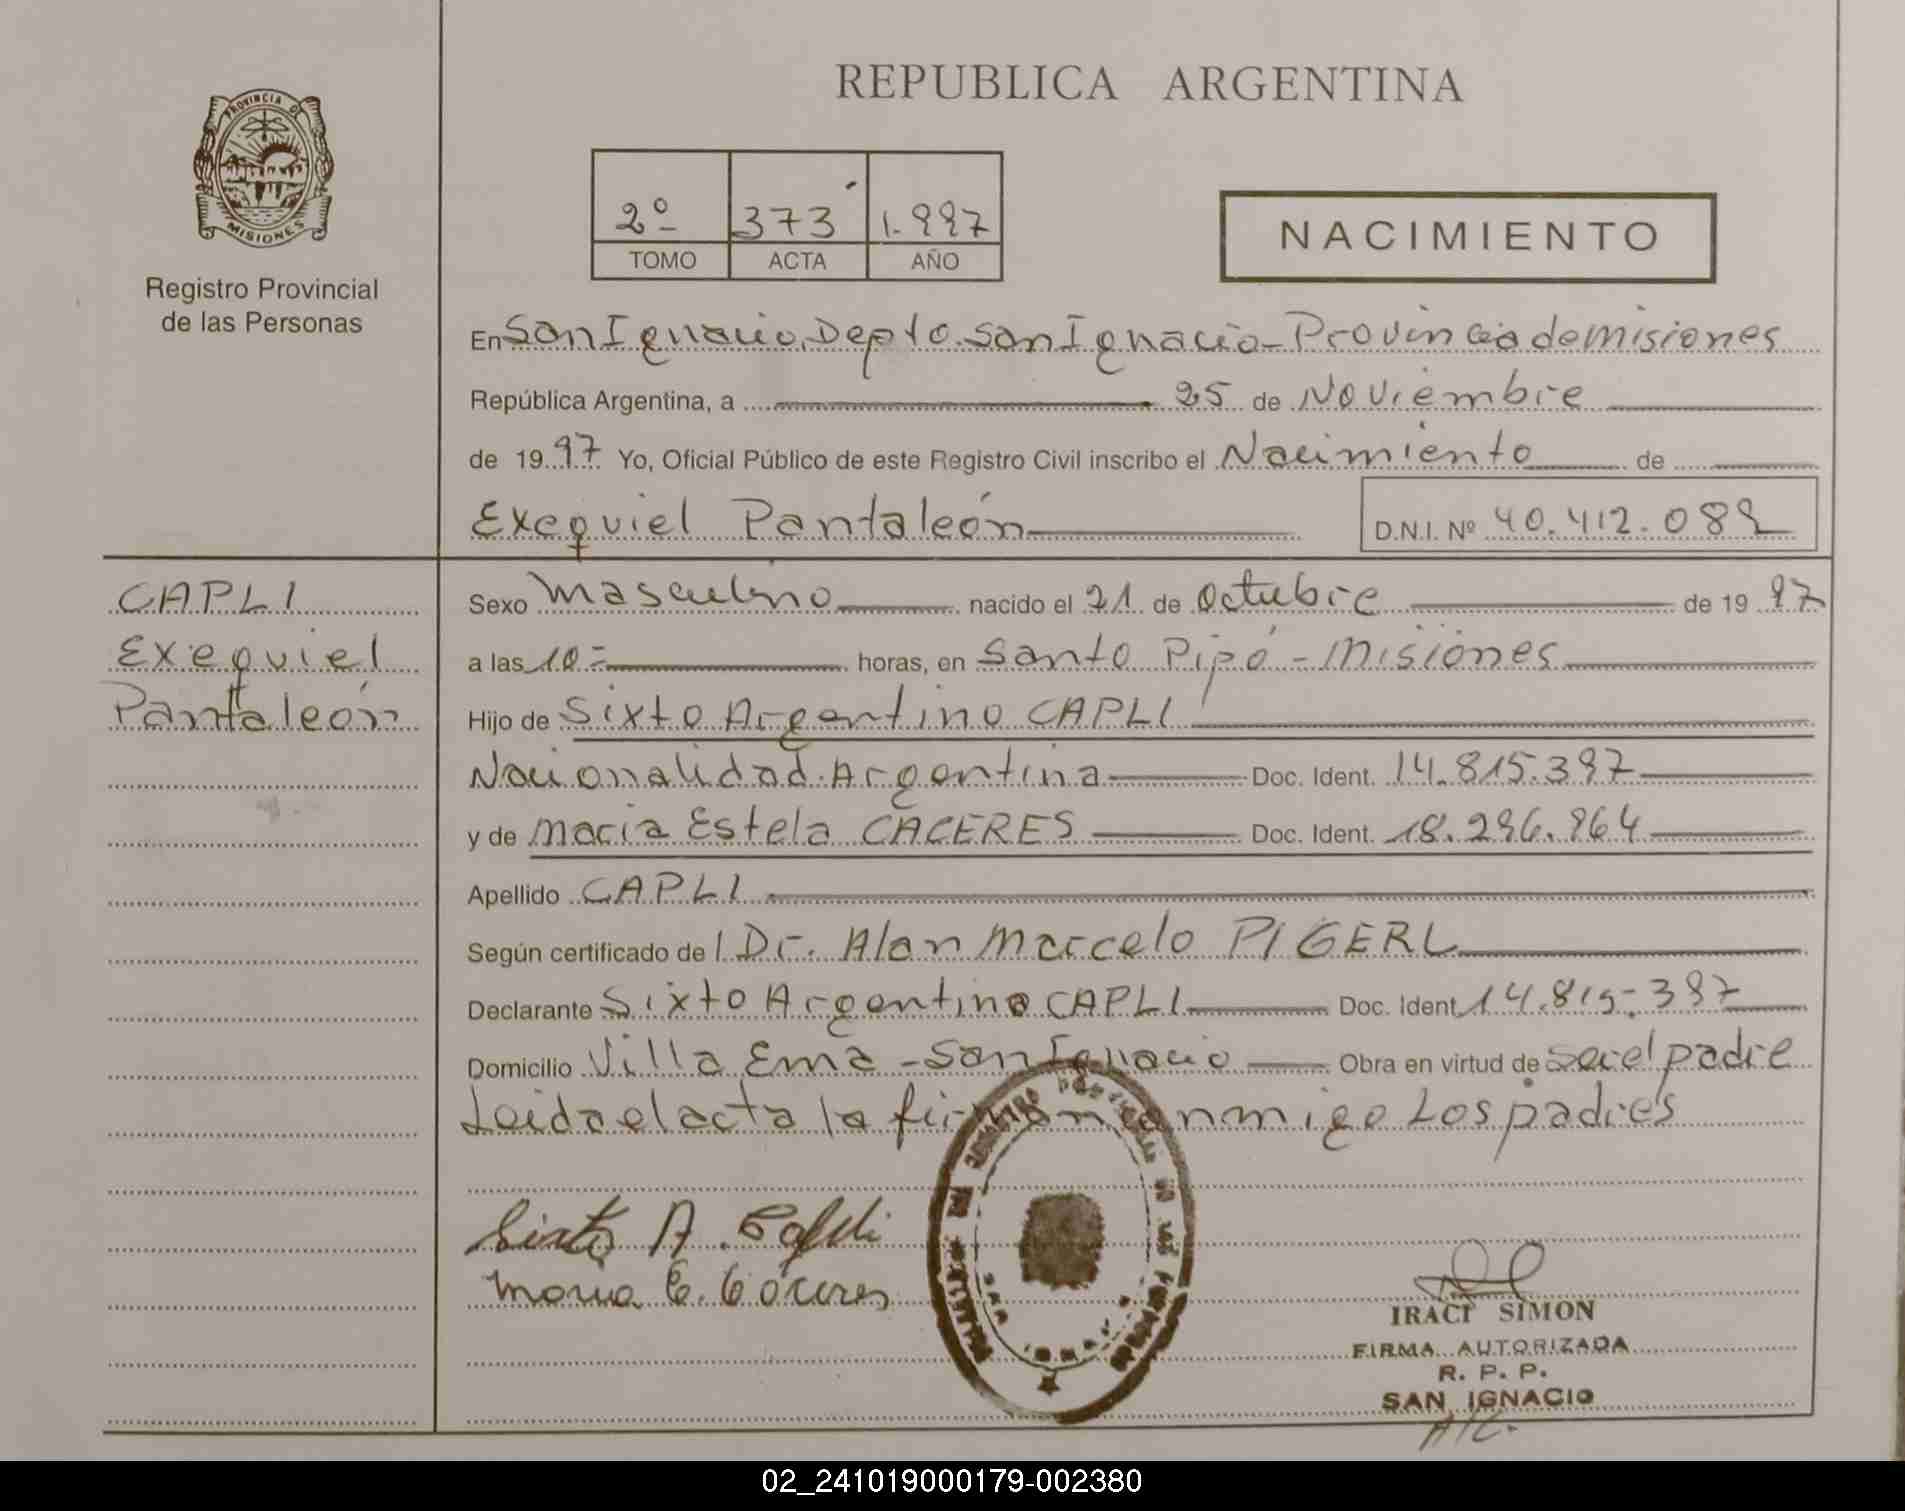 REPUBLICA ARGENTINA
PROVINCIA DE
MISIONES
Registro Provincial
de las Personas
2º 373 1.997
TOMO ACTA AÑO
NACIMIENTO
En San Ignacio, Depto. San Ignacio - Provincia de Misiones
República Argentina, a 25 de Noviembre
de 1997 Yo, Oficial Público de este Registro Civil inscribo el Nacimiento de
Exequiel Pantaleón D.N.I. Nº 40.412.089
CAPLI
Exequiel
Pantaleón
Sexo Masculino nacido el 21 de Octubre de 1997
a las 10- horas, en Santo Pipó - Misiones
Hijo de Sixto Argentino CAPLI
Nacionalidad Argentina Doc. Ident. 14.815.397
y de Maria Estela CACERES Doc. Ident. 18.296.964
Apellido CAPLI
Según certificado de l Dr. Alan Marcelo PIGERL
Declarante Sixto Argentino CAPLI Doc. Ident. 14.815.397
Domicilio Villa Ema - San Ignacio Obra en virtud de ser el padre
Leida el acta la firman conmigo Los padres
Sixto A. Capli
Maria E. Cáceres
IRACI SIMON
FIRMA AUTORIZADA
R. P. P.
SAN IGNACIO
A/C.
02_241019000179-002380